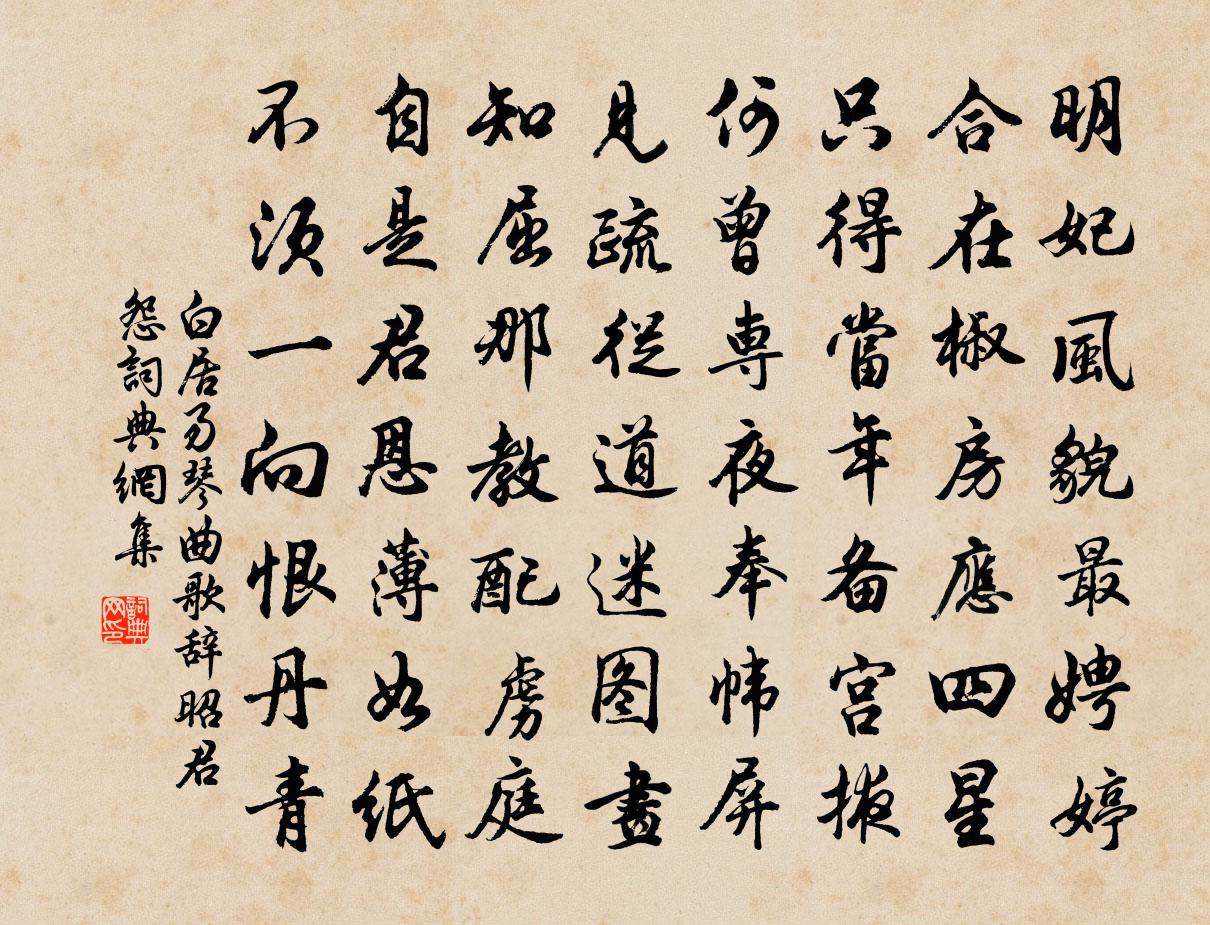 明妃風貌最娉婷
合在椒房應四星
只得當年备宮掖
何曾専夜奉帏屏
見疏從道迷图畫
知屈那教配虜庭
自是君恩薄如紙
不須一向恨丹青
白居易琴曲歌辞昭君
怨詞典網集
詞典
网印